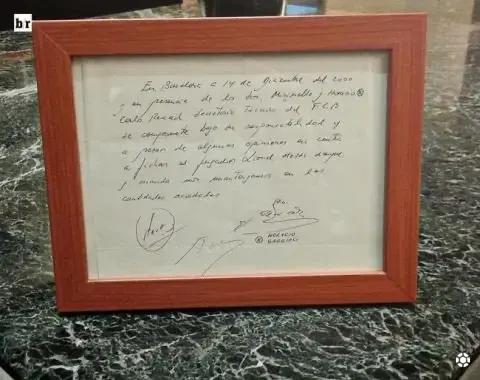 br
En Barcelona a 14 de Diciembre del 2000
y en presencia de los Sres. Minguella y Horacio Ⓡ
Carlo Rexach Secretario Técnico del F.C.B
se compromete bajo su responsabilidad y
a pesar de algunas opiniones en contra
a fichar al jugador Lionel Messi
y cuando nos mantengamos en las
cantidades acordadas
Ⓡ HORACIO
GAGGIOLI